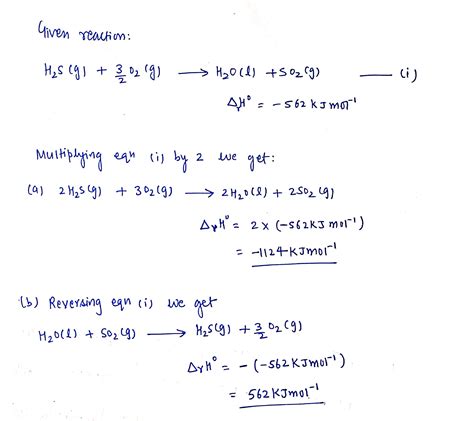 Given reaction:
H₂S(g) + 3/2 O₂(g) ⟶ H₂O(l) + SO₂(g) —— (i)
ΔᵣH° = -562 KJ mol⁻¹
Multiplying eqn (i) by 2 we get:
(a) 2H₂S(g) + 3O₂(g) ⟶ 2H₂O(l) + 2SO₂(g)
ΔᵣH° = 2 x (-562KJ mol⁻¹)
= -1124 KJmol⁻¹
(b) Reversing eqn (i) we get
H₂O(l) + SO₂(g) ⟶ H₂S(g) + 3/2 O₂(g)
ΔᵣH° = - (-562KJmol⁻¹)
= 562KJmol⁻¹